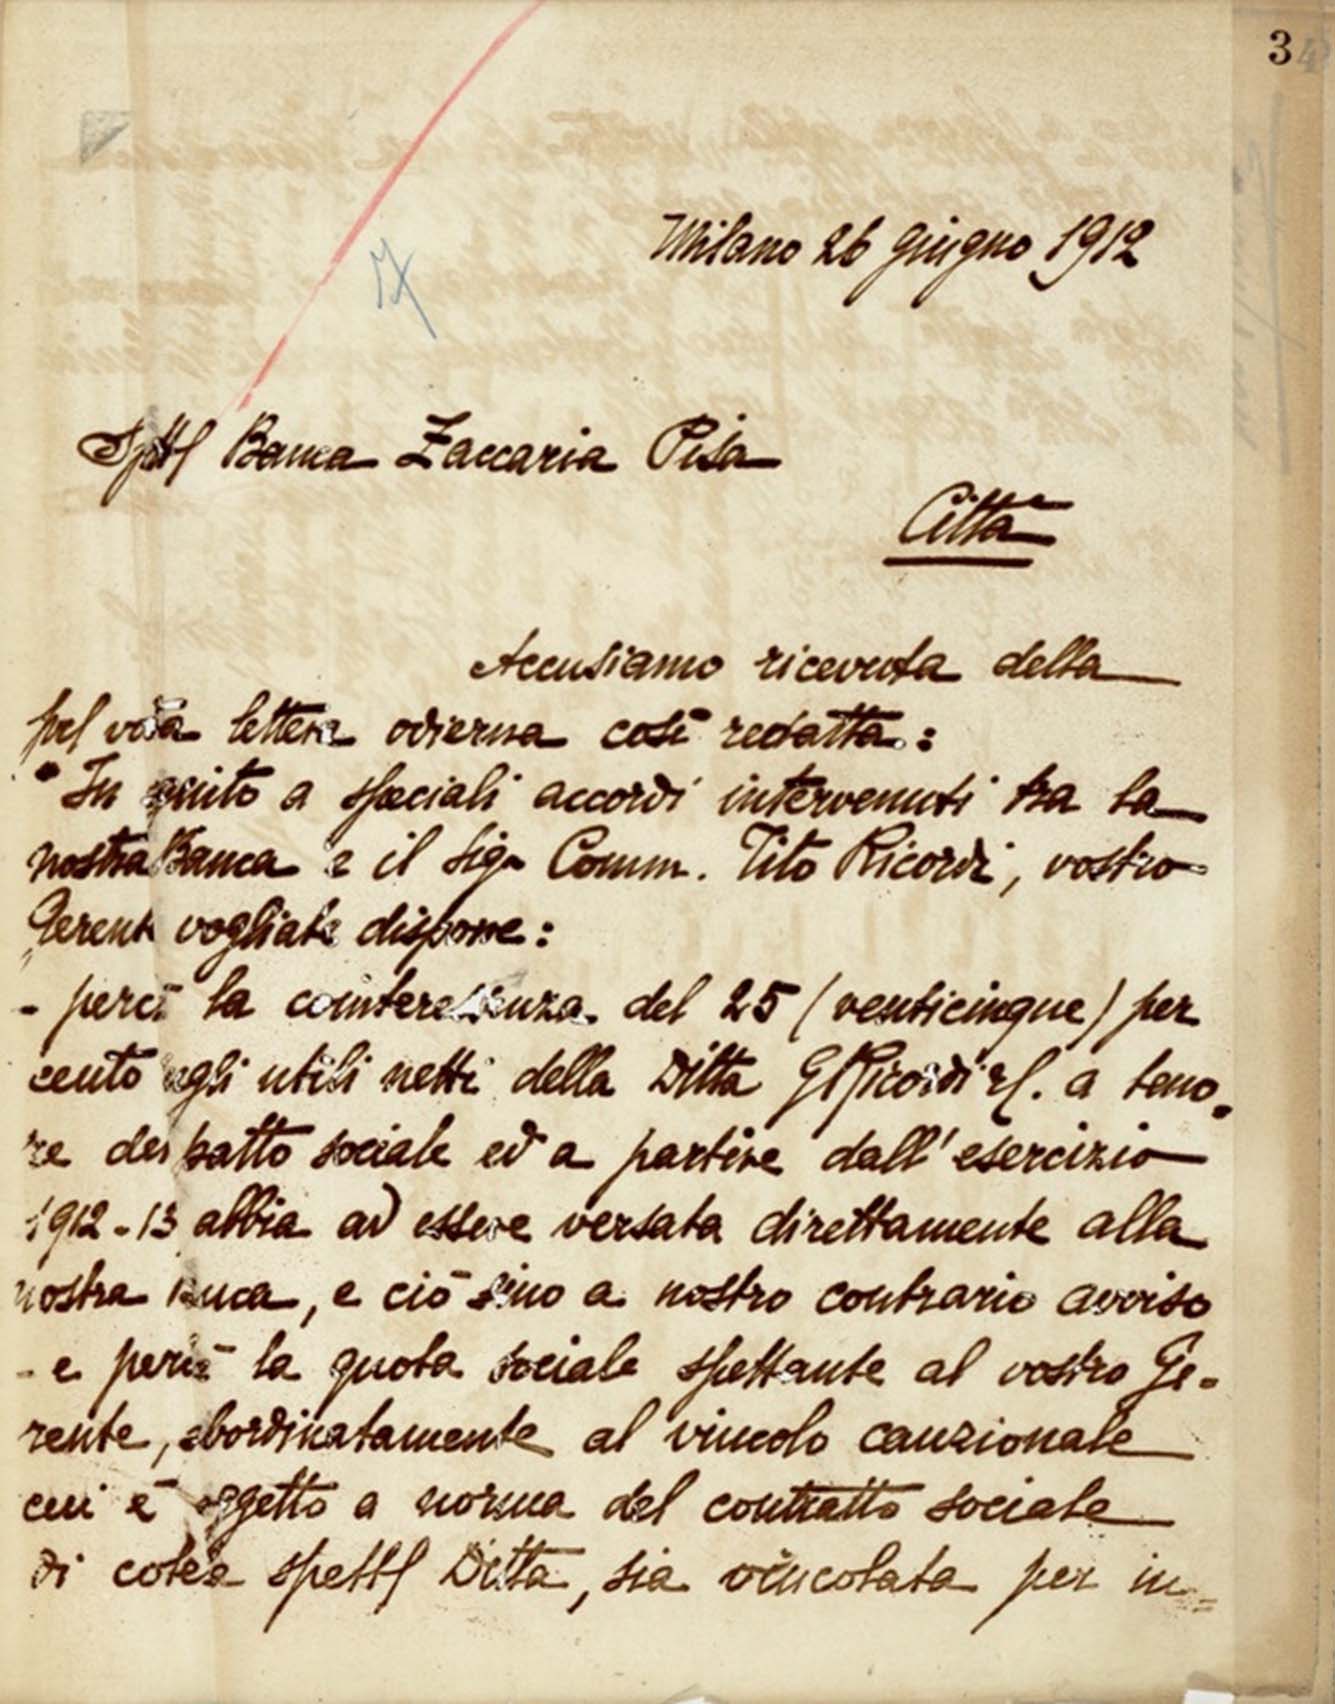 34
Milano 26 giugno 1912
Spettl Banca Zaccaria Pisa
Città
Accusiamo ricevuta della
pel vôra lettera odierna così redatta:
"In seguito a speciali accordi intervenuti tra la
nostra Banca e il Sigr Comm. Tito Ricordi, vostro
Gerente vogliate disporre:
- perchè la cointeressenza del 25 (venticinque) per
cento negli utili netti della Ditta G Ricordi & C. a teno-
re dei patto sociale ed a partire dall'esercizio
1912-13 abbia ad essere versata direttamente alla
nostra Banca, e ciò sino a nostro contrario avviso
- e perchè la quota sociale spettante al vostro Ge-
rente, subordinatamente al vincolo cauzionale
cui è soggetto a norma del contratto sociale
di cotesta spettl Ditta, sia vincolata per in=